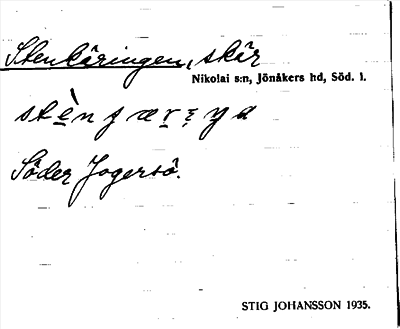 Stenkäringen, skär
Nikolai s:n, Jönåkers hd, Söd. l.
Söder Jogersö.
STIG JOHANSSON 1935.